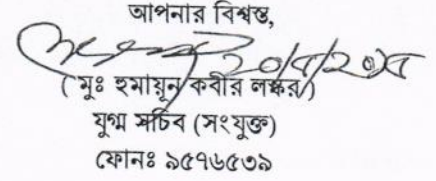 আপনার বিশ্বস্ত,
২০/৫/২০১৫
( মুঃ হুমায়ুন কবীর লস্কর )
যুগ্ম সচিব (সংযুক্ত)
ফোনঃ ৯৫৭৬৫৩৯